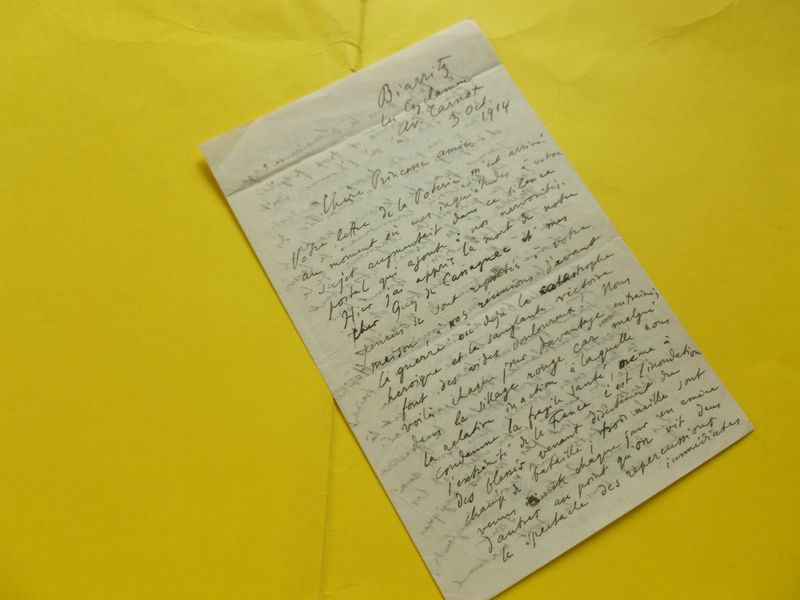 Biarritz
Les Cyclamens
Av. Carnot
3 Oct.
1914
Chère Princesse amie
Votre lettre de la Poterie m'est arrivée
au moment où mes inquiétudes à votre
sujet augmentait dans ce silence
postal qui ajoute à nos nervosités.
Hier j'ai appris la mort de notre
cher Guy de Cassagnac et mes
pensées se sont reportées à votre
maison, à nos réunions d'avant
la guerre où déjà la catastrophe
héroïque et la sanglante victoire
font des vides douloureux! Nous
voilà chaque jour davantage entraînés
dans le sillage rouge car malgré
la relative inaction à laquelle nous
condamne la fragile santé, même à
l'extrémité de la France c'est l'inondation
des blessés venant directement du
champ de bataille, trois mille sont
venus et chaque jour en amène
d'autres au point qu'on vit dans
le spectacle des répercussions
immédiates